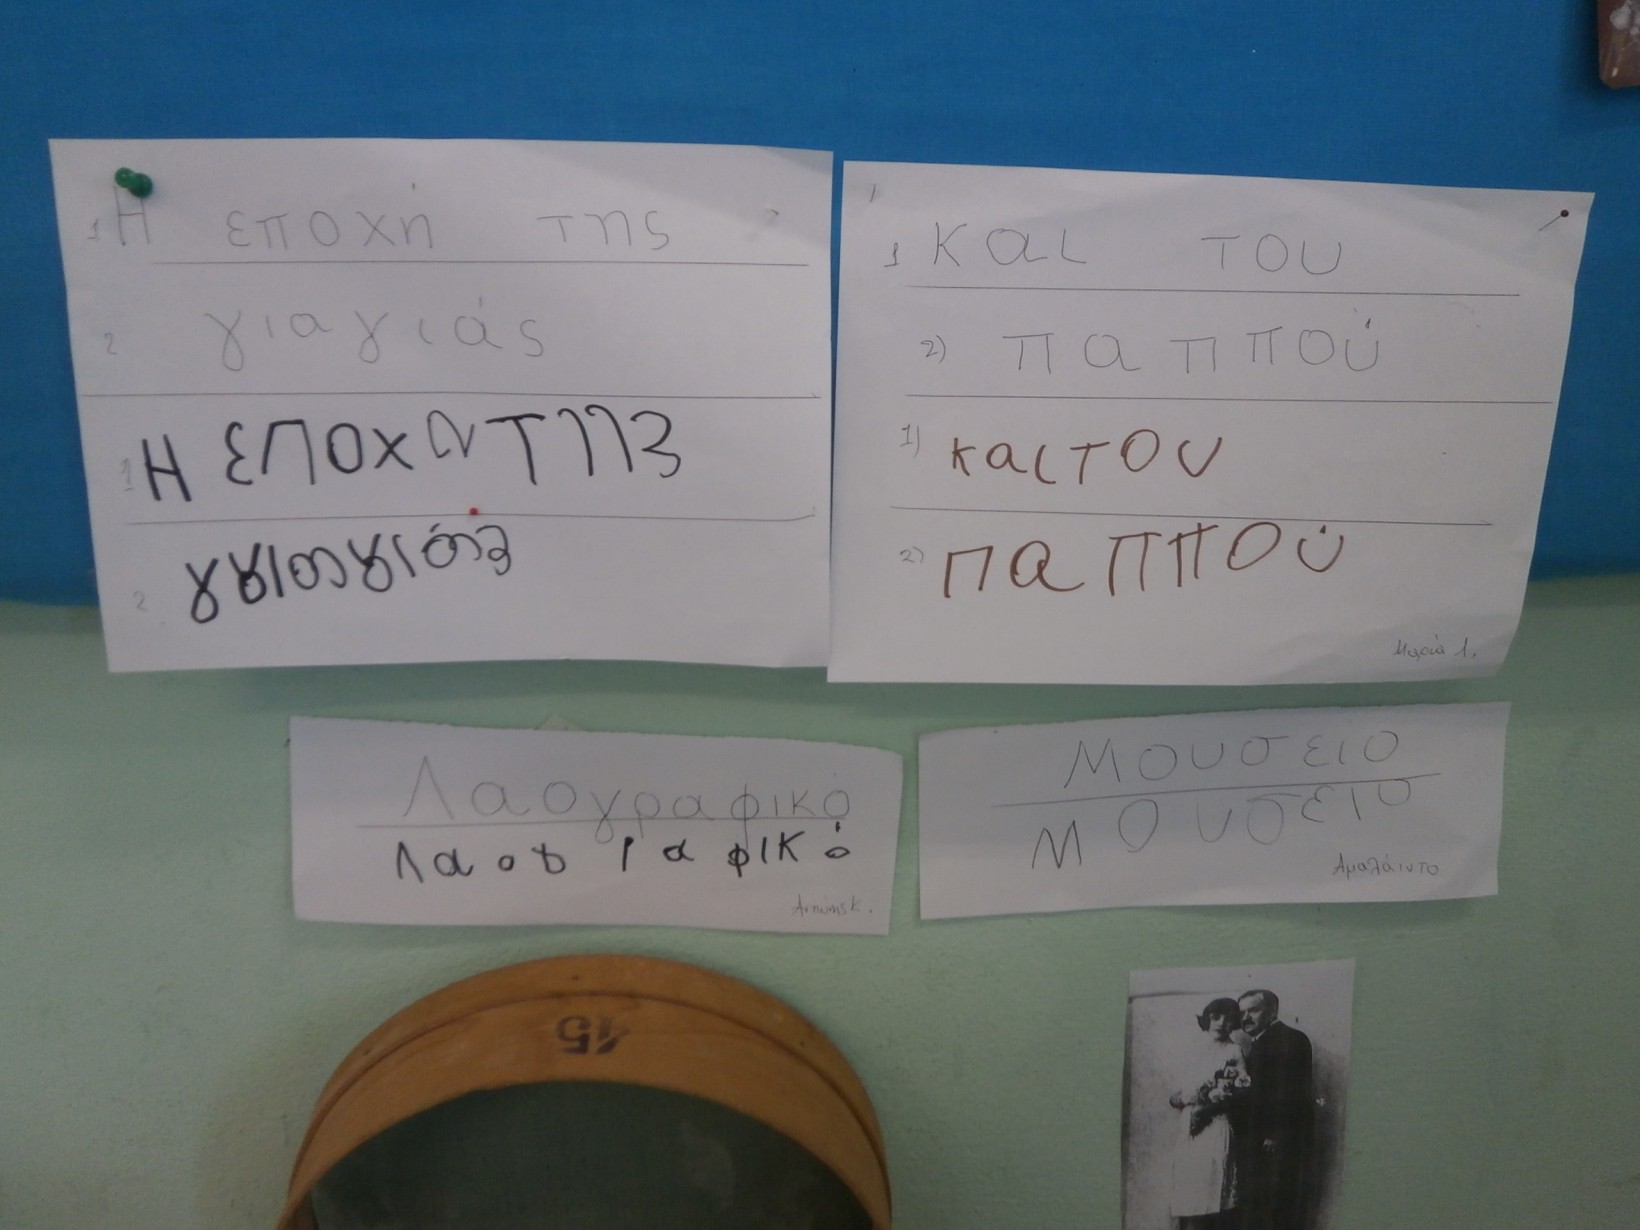 1 Η εποχή της
2 γιαγιάς
1 Η εποχη της
2
1 Και του
2) παππού
1) και του
2) παππού
Μαρία Λ.
Λαογραφικό
Λαογραφικό
Μουσειο
Μουσειο
Αμαλάιντο
45